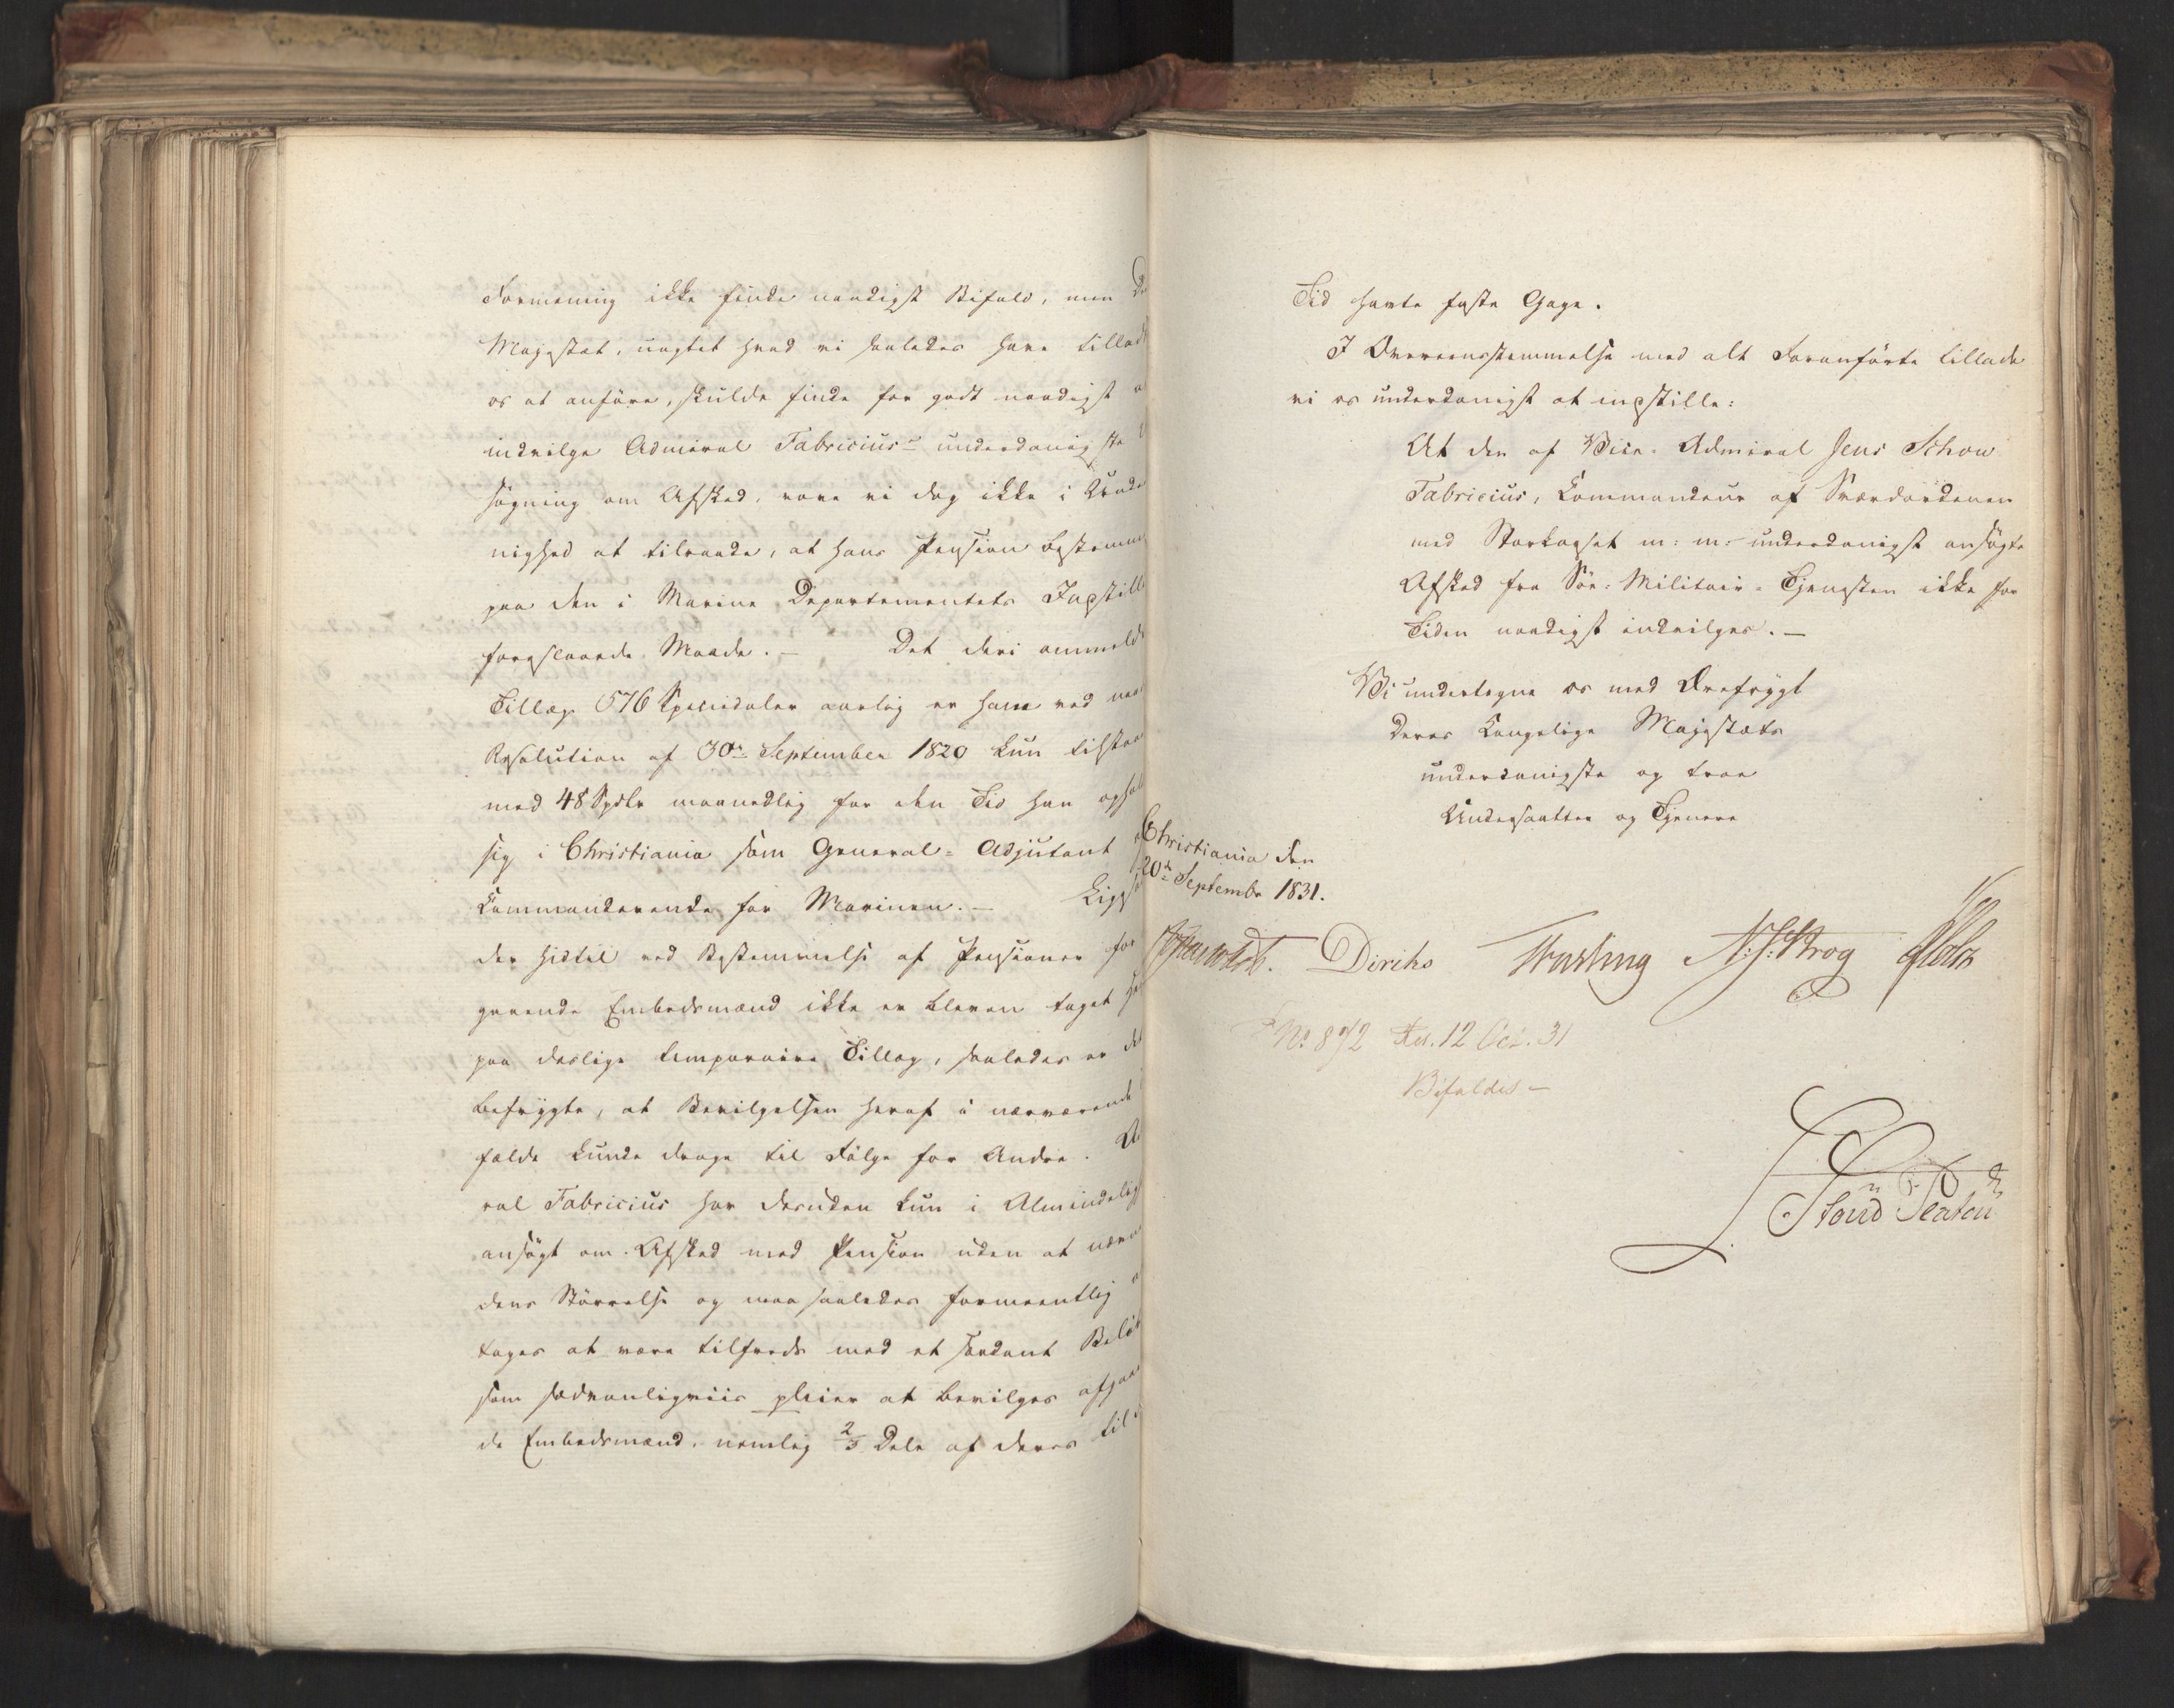 Formening ikke finde naadigst Bifald, men De
Majestæt, uagtet hvad vi saaledes have tillad
os at anføre, skulde finde for godt naadigst a
indvilge Admiral Fabricius's underdanigste
søgning om Afsked, vove vi dog ikke i Unde
nighed at tilraade, at hans Pension bestemme
paa den i Marine Departementets Indstill
foreslaaede Maade. — Det deri ommeldt
Tillæg 576 Speciedaler aarlig er ham ved naa
Resolution af 30te September 1820 kun tilstaa
med 48 Spdlr maanedlig for den Tid han ophol
sig i Christiania som General-Adjutant
Commanderende for Marinen. — Ligesa
der hidtil ved Bestemmelse af Pensioner for
gaaende Embedsmænd ikke er bleven taget Hen
paa deslige temporaire Tillæg, saaledes er det
befrygte, at Bevilgelsen heraf i nærværende
fælde kunde drage til Følge for Andre. A
ral Fabricius har desuden kun i Almindelig
ansøgt om Afsked med Pension uden at nævn
dens Størrelse og maa saaledes formeentlig a
tages at være tilfreds med et saadant Beløb
som sædvanligviis pleier at bevilges afgaaen
de Embedsmænd, nemlig 2/3 Dele af deres til
Tid havte faste Gage.
I Overeensstemmelse med alt Foranførte tillade
vi os underdanigst at indstille:
At den af Vice-Admiral Jens Schow
Fabricius, Commandeur af Sværdordenen
med Storkorset m: m: underdanigst ansøgte
Afsked fra Søe-Militair-Tjenesten ikke for
Tiden naadigst indvilges. —
Vi undertegne os med Ærefrygt
Deres Kongelige Majestæts
underdanigste og troe
Undersaatter og Tjenere
Christiania den
20de Septembr 1831.
Diriks N. J. Krog
No 872 Res. 12 Oct. 31
Bifaldes —